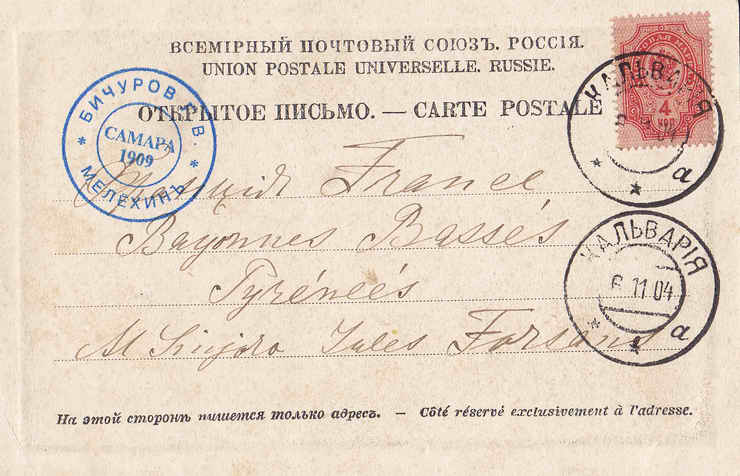 ВСЕМІРНЫЙ ПОЧТОВЫЙ СОЮЗЪ. РОССІЯ.
UNION POSTALE UNIVERSELLE. RUSSIE.
ОТКРЫТОЕ ПИСЬМО. — CARTE POSTALE
4
КОП
КАЛЬВАРІЯ
04
а
БИЧУРОВ В.
САМАРА
1909
МЕЛЕХИНЪ
France
Bayonnes Bassés
Pyrénéés
M Sinjoro Jules
КАЛЬВАРІЯ
6 11 04
а
На этой сторонѣ пишется только адресъ. — Côté réservé exclusivement à l'adresse.